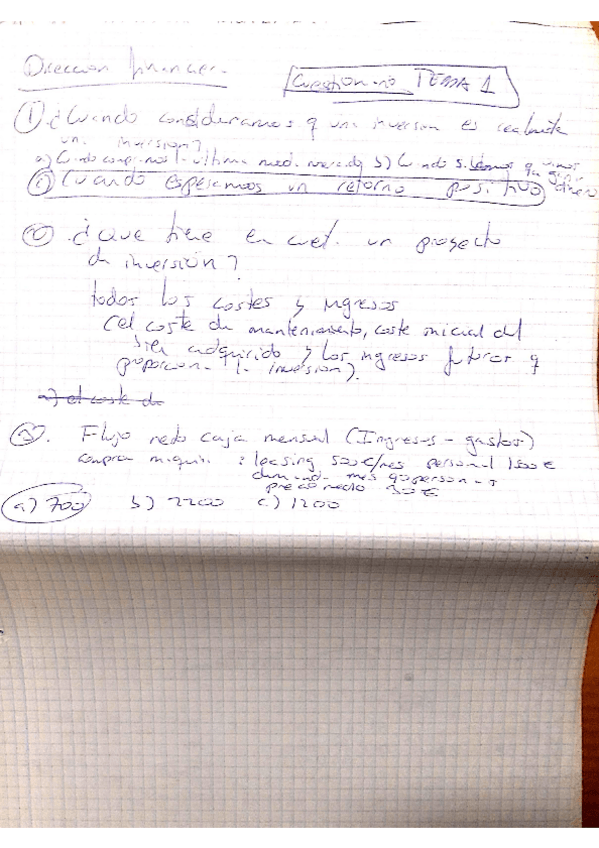 Direccion financier.
Cuestionario TEMA 1
① ¿Cuando consideramos q una inversion es realmente
un. inversion?
a) Cundo compramos l. ultima med. mercado b) Cundo sabemos q
dinero
c) Cuando esperamos un retorno positivo
② ¿Que tiene en cuet. un proyecto
de inversión?
todos los costes y ingresos
(el coste de mantenimiento, coste inicial del
bien adquirido y los ingresos futuros q
proporcion. l. inversion).
a) el coste de
③. Flujo neto caja mensual (Ingresos - gastos)
comprar maquin. : leasing 500€/mes personal 1500€
dem.nd. mes 90 person.s
precio medio 30€
a) 700 b) 2200 c) 1200